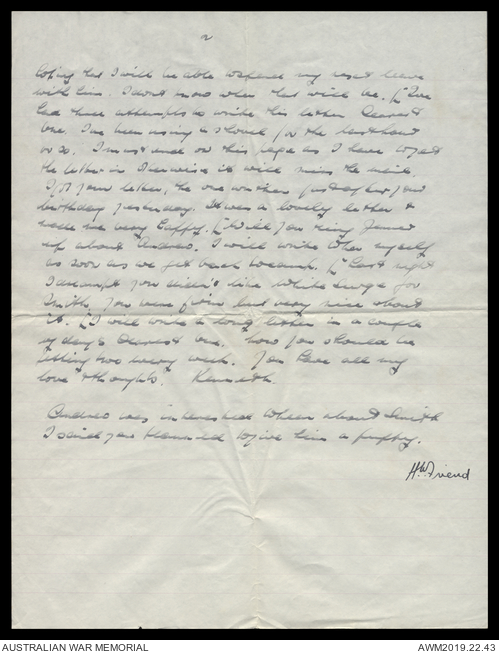 2
hoping that I will be able to spend my next leave
with him. I don't know when that will be. [I've
had three attempts to write this letter Dearest
one. I've been using a shovel for the last hour
or so. I must end on this page as I have to get
the letter in otherwise it will miss the mail.
I got your letter, the one written just after your
birthday yesterday. It was a lovely letter &
made me very happy. [Will you ring
up about Andrew. I will write to her myself
as soon as we get back to camp. [Last night
I dreamt you didn't like White Serge for
Smith, you were firm but very nice about
it. [I will write a long letter in a couple
of days Dearest one. Now you should be
getting two every week. You have all my
love & thoughts. Kenneth.
Andrew was interested when about Smith
I said you planned to give him a puppy.
H.W. Friend
AUSTRALIAN WAR MEMORIAL
AWM2019.22.43